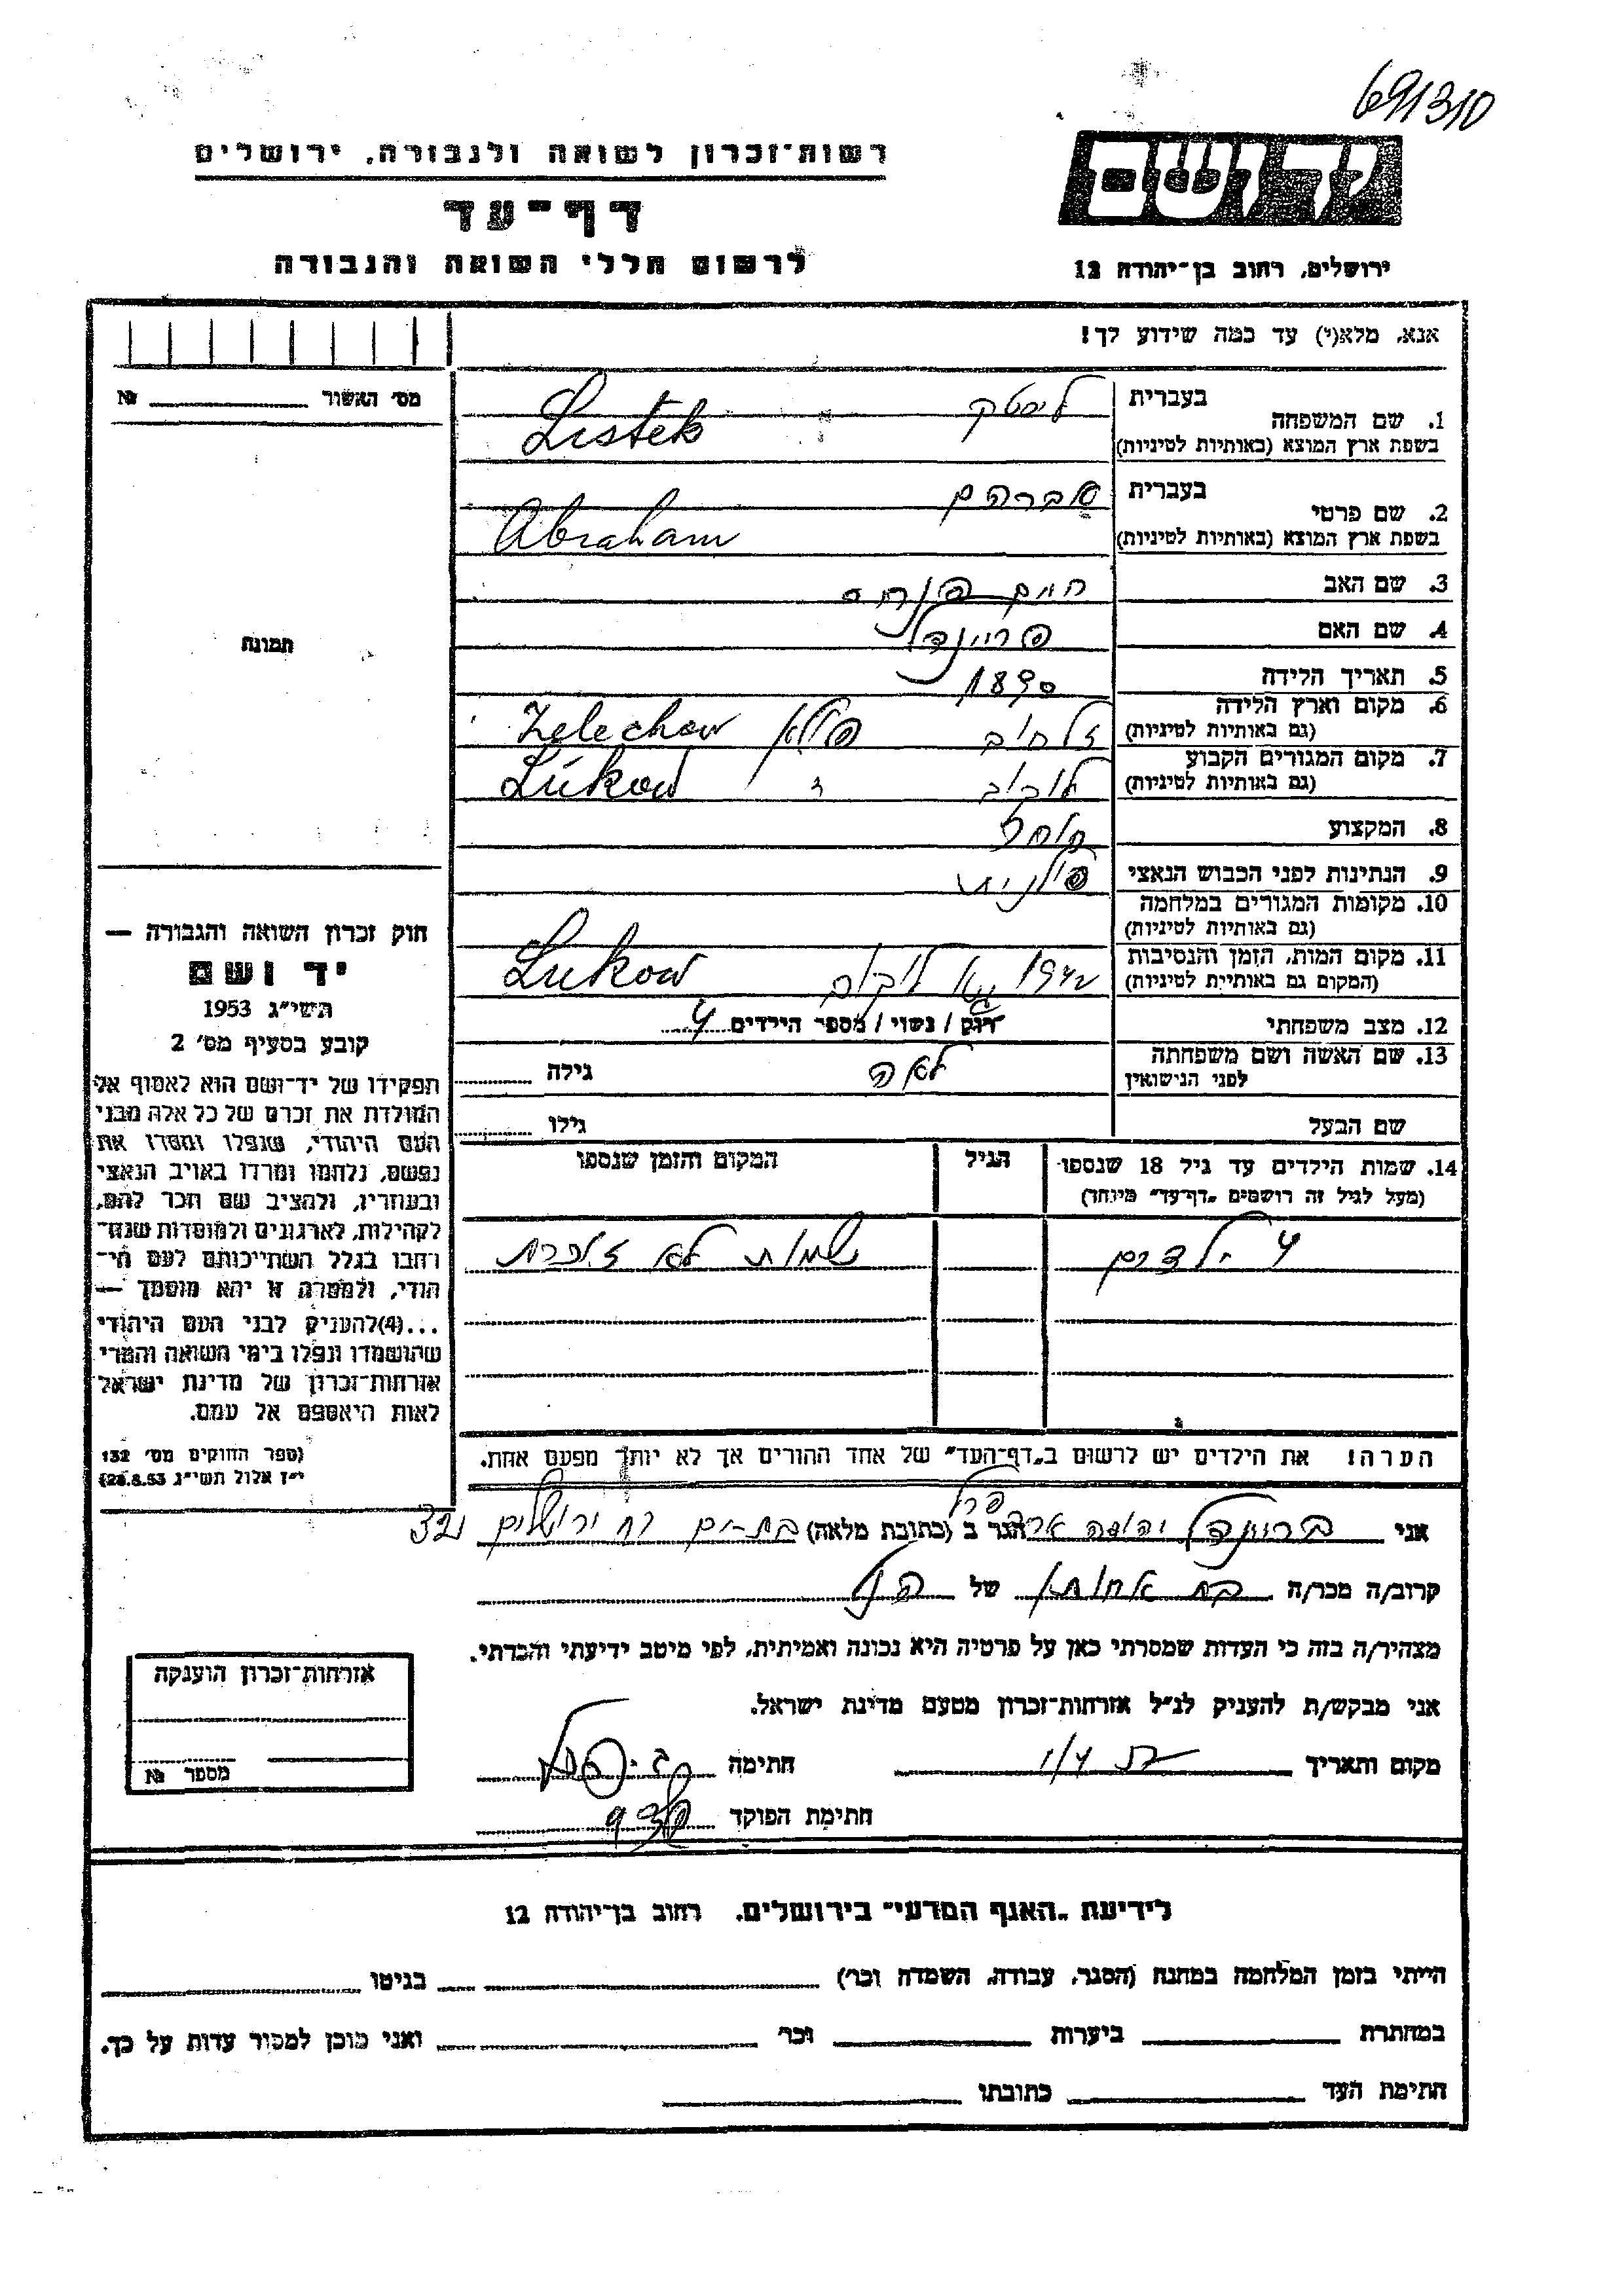 691310
יד ושם
רשות־זכרון לשואה ולגבורה, ירושלים
דף־עד
לרשום חללי השואה והגבורה
ירושלים, רחוב בן־יהודה 12
אנא, מלא(י) עד כמה שידוע לך!
מס׳ האשור № 
1. שם המשפחה בעברית ליסטק
בשפת ארץ המוצא (באותיות לטיניות) Listek
2. שם פרטי בעברית אברהם
בשפת ארץ המוצא (באותיות לטיניות) Abraham
3. שם האב חיים פנחס
4. שם האם פריינדל
5. תאריך הלידה 1890
6. מקום וארץ הלידה
(גם באותיות לטיניות) זלחוב פולין Zelechow
7. מקום המגורים הקבוע
(גם באותיות לטיניות) לוקוב Łukow
8. המקצוע סוחר
9. הנתינות לפני הכבוש הנאצי פולנית
10. מקומות המגורים במלחמה
(גם באותיות לטיניות)
11. מקום המות, הזמן והנסיבות
(המקום גם באותיות לטיניות) 1942 לוקוב Lukow
12. מצב משפחתי רוק / נשוי / מספר הילדים 4
13. שם האשה ושם משפחתה
לפני הנישואין לאה גילה
שם הבעל גילו
14. שמות הילדים עד גיל 18 שנספו הגיל המקום והזמן שנספו
(מעל לגיל זה רושמים „דף־עד״ מיוחד)
4 ילדים שמות לא זוכרת
הערה! את הילדים יש לרשום ב„דף־העד״ של אחד ההורים אך לא יותר מפעם אחת.
תמונה
חוק זכרון השואה והגבורה —
יד ושם
תשי״ג 1953
קובע בסעיף מס׳ 2
תפקידו של יד־ושם הוא לאסוף אל
המולדת את זכרם של כל אלה מבני
העם היהודי, שנפלו ומסרו את
נפשם, נלחמו ומרדו באויב הנאצי
ובעוזריו, ולהציב שם וזכר להם,
לקהילות, לארגונים ולמוסדות שנח־
רבו בגלל השתייכותם לעם הי־
הודי, ולמטרה זו יהא מוסמך —
...(4)להעניק לבני העם היהודי
שהושמדו ונפלו בימי השואה והמרי
אזרחות־זכרון של מדינת ישראל
לאות היאספם אל עמם.
(ספר החוקים מס׳ 132
י״ז אלול תשי״ג 28.8.53)
אני בריינדל יהודה הגר ב (כתובת מלאה) בת־ים רח ירושלים
קרוב/ה מכר/ה בת אחותו של הנ״ל
מצהיר/ה בזה כי העדות שמסרתי כאן על פרטיה היא נכונה ואמיתית, לפי מיטב ידיעתי והכרתי.
אני מבקש/ת להעניק לנ״ל אזרחות־זכרון מטעם מדינת ישראל.
מקום ותאריך חתימה
חתימת הפוקד
אזרחות־זכרון הוענקה
מספר №
לידיעת „האגף המדעי״ בירושלים, רחוב בן־יהודה 12
הייתי בזמן המלחמה במחנה (הסגר, עבודה, השמדה וכו׳) בגיטו
במחתרת ביערות וכו׳ ואני מוכן למסור עדות על כך.
חתימת העד כתובתו